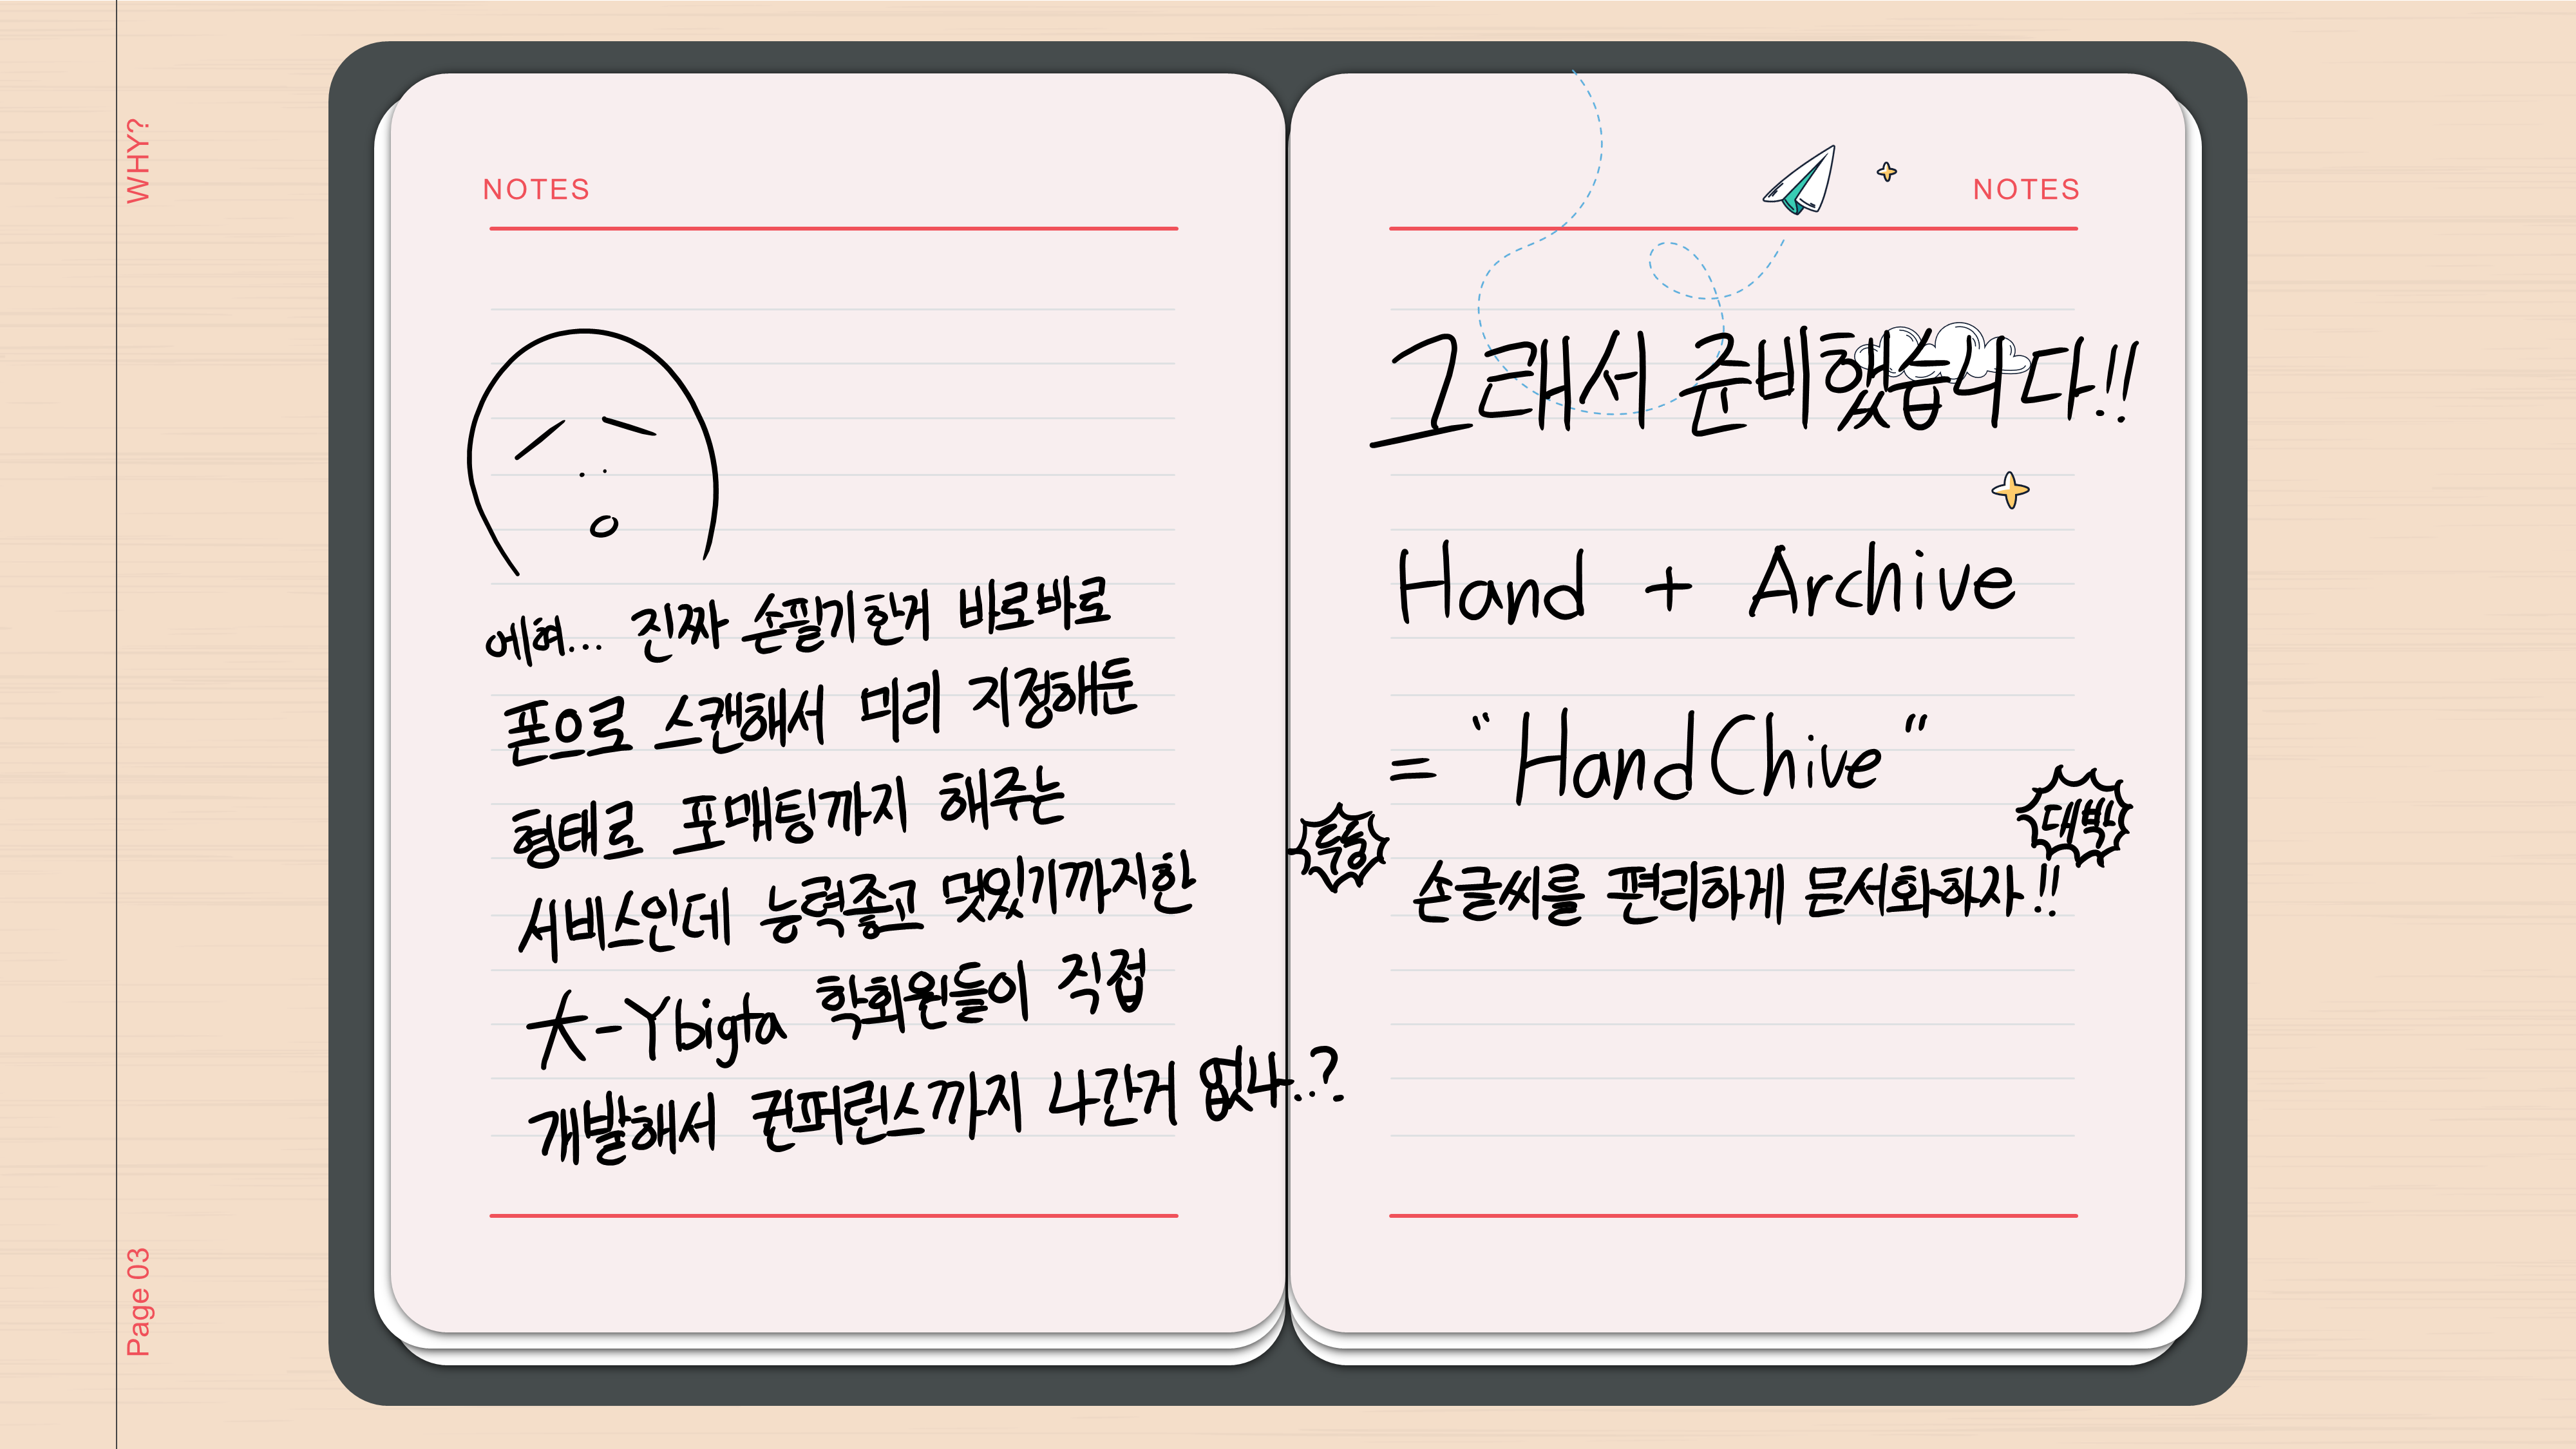 WHY?
NOTES
에혀... 진짜 손필기한거 바로바로
폰으로 스캔해서 미리 지정해둔
형태로 포매팅까지 해주는
서비스인데 능력좋고 멋있기까지한
大-Ybigta 학회원들이 직접
개발해서 컨퍼런스까지 나간거 없나..?
NOTES
그래서 준비했습니다!!
Hand + Archive
= "HandChive"
두둥
대박
손글씨를 편리하게 문서화하자!!
Page 03